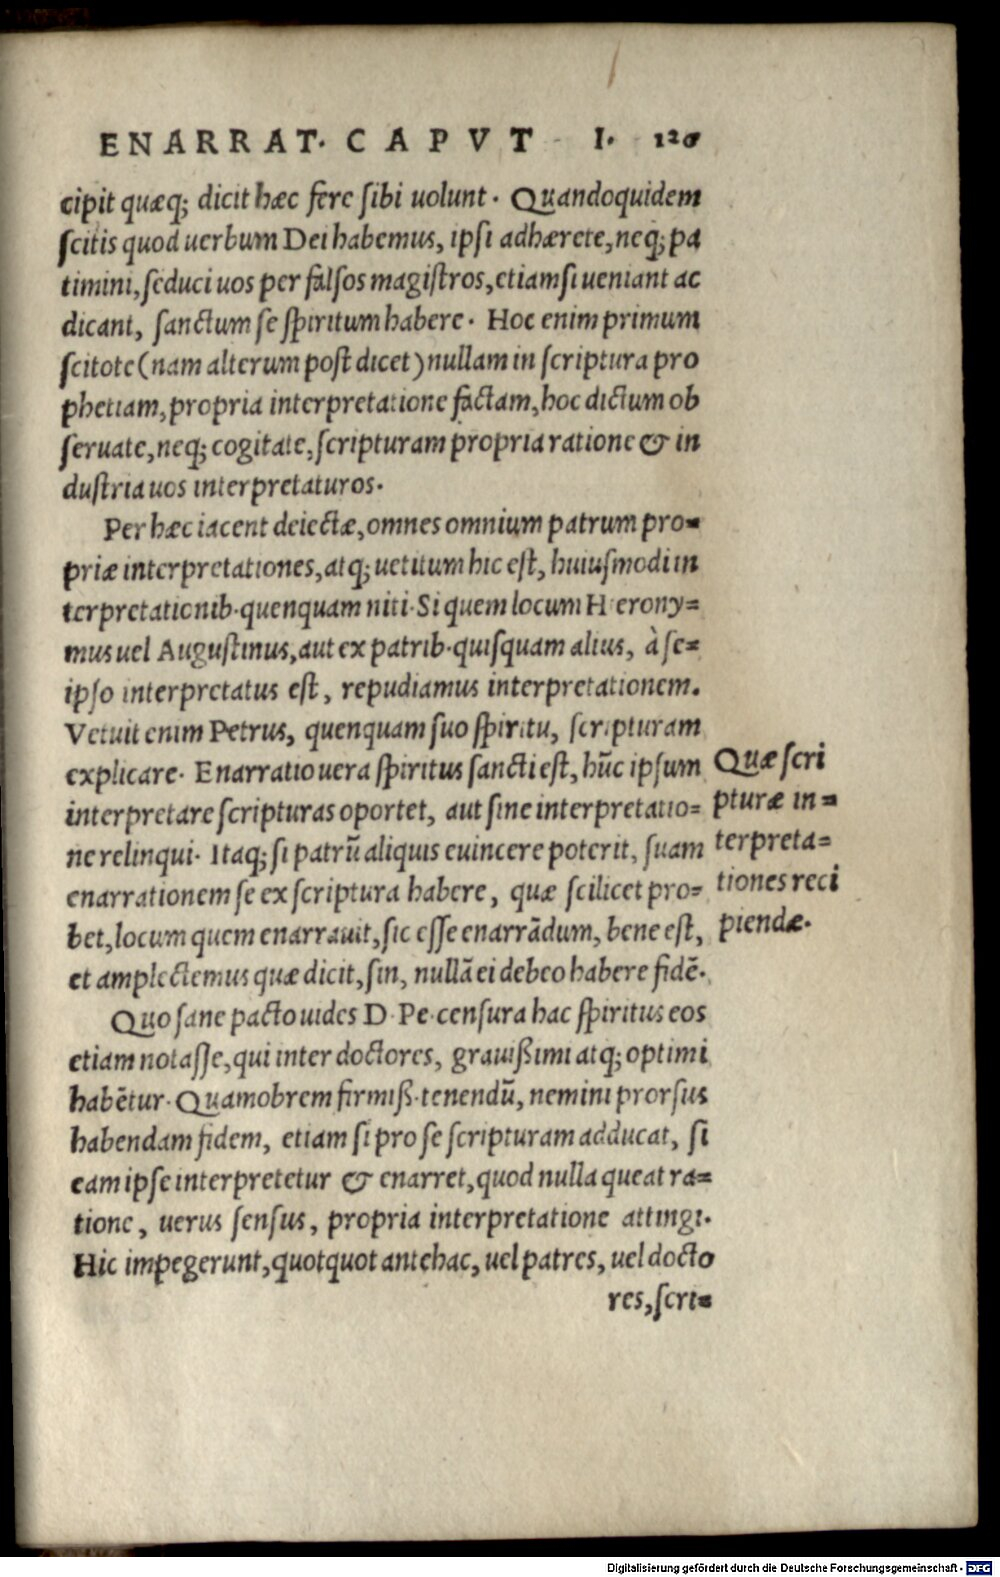 ENARRAT. CAPVT I. 120
cipit quæq; dicit hæc fere sibi uolunt. Quandoquidem
scitis quod uerbum Dei habemus, ipsi adhærete, neq; pa
timini, seduci uos per falsos magistros, etiamsi ueniant ac
dicant, sanctum se spiritum habere. Hoc enim primum
scitote (nam alterum post dicet) nullam in scriptura pro
phetiam, propria interpretatione factam, hoc dictum ob
seruate, neq; cogitate, scripturam propria ratione & in
dustria uos interpretaturos.
Per hæc iacent deiectæ, omnes omnium patrum pro=
priæ interpretationes, atq; uetitum hic est, huiusmodi in
terpretationib. quenquam niti. Si quem locum Hierony=
mus uel Augustinus, aut ex patrib. quisquam alius, à se=
ipso interpretatus est, repudiamus interpretationem.
Vetuit enim Petrus, quenquam suo spiritu, scripturam
explicare. Enarratio uera spiritus sancti est, hũc ipsum
interpretare scripturas oportet, aut sine interpretatio=
ne relinqui. Itaq; si patrũ aliquis euincere poterit, suam
enarrationem se ex scriptura habere, quæ scilicet pro=
bet, locum quem enarrauit, sic esse enarrãdum, bene est,
et amplectemus quæ dicit, sin, nullã ei debeo habere fidẽ.
Quo sane pacto uides D. Pe. censura hac spiritus eos
etiam notasse, qui inter doctores, grauißimi atq; optimi
habẽtur. Quamobrem firmiß. tenendũ, nemini prorsus
habendam fidem, etiam si pro se scripturam adducat, si
eam ipse interpretetur & enarret, quod nulla queat ra=
tione, uerus sensus, propria interpretatione attingi.
Hic impegerunt, quotquot antehac, uel patres, uel docto
res, scri=
Quæ scri
pturæ in=
terpreta=
tiones reci
piendæ.
Digitalisierung gefördert durch die Deutsche Forschungsgemeinschaft - DFG